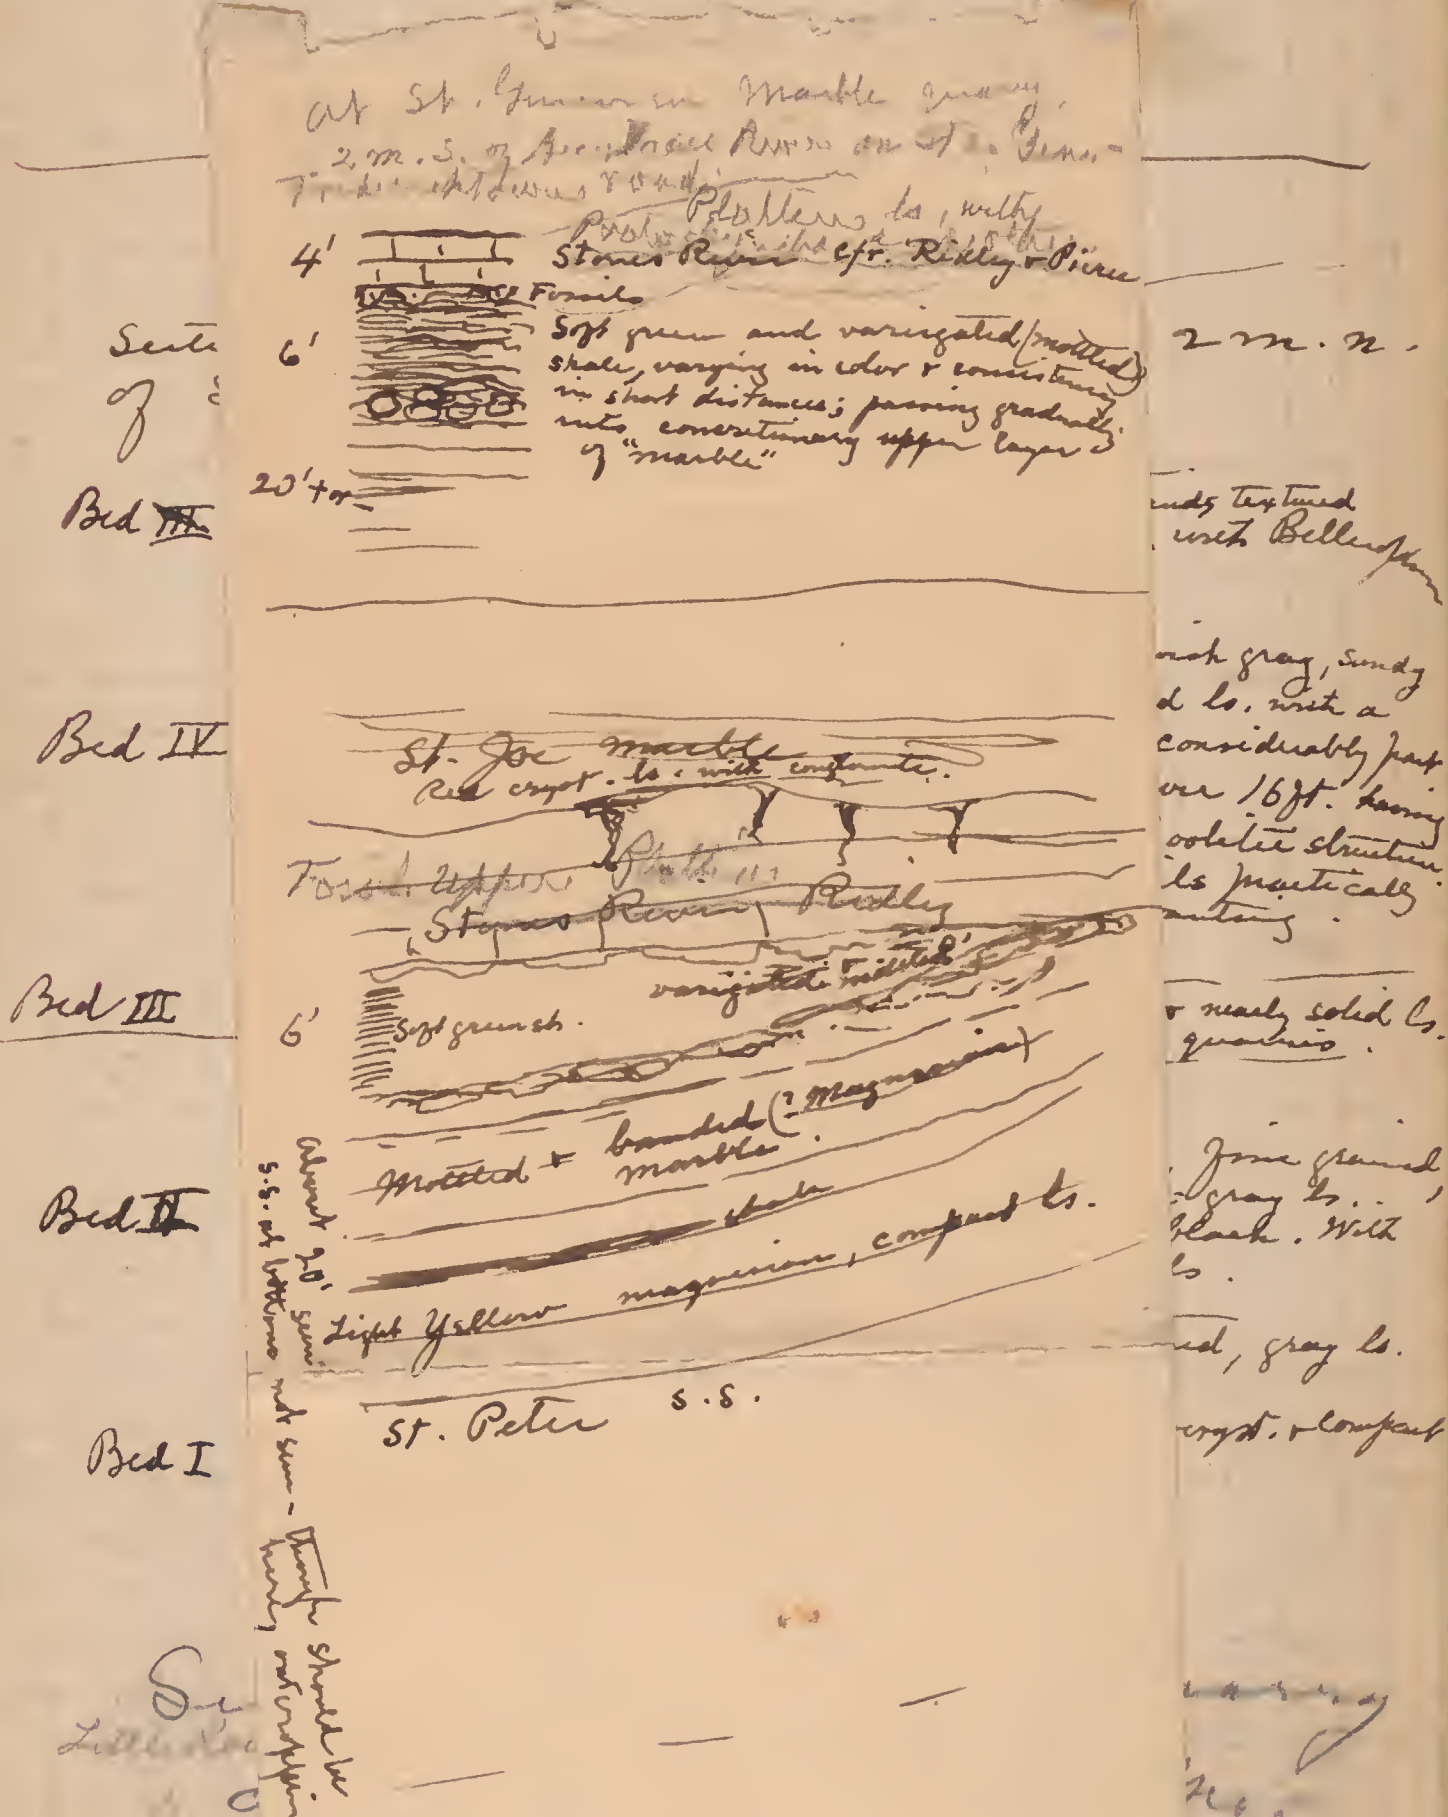 At St. Marble quarry,
2 m. S. of River on St.
road.
Plattin ls, with
4'
Stones River cfr. Ridley & Pierce
Fossils
6'
Soft green and variegated (mottled)
shale, varying in color & consistency
in short distances; passing gradually
into concretionary upper layers
of "marble"
20' + or -
St. Joe marble
Red cryst. ls. with conglomerate.
Fossil. Upper Plattin
Stones River, Ridley
variegated & mottled
6'
Soft green sh.
Mottled & banded (? Magnesian)
marble.
shale
Light Yellow magnesian, compact ls.
St. Peter s.s.
About 20' seen
s.s. at bottom not seen - though should be
here, outcroppin
Secti
of
Bed III
Bed IV
Bed III
Bed II
Bed I
2 m. n.
textured
with Bellerophon
ish gray, sandy
d ls. with a
considerably part
ver 16 ft. having
oolitic structure.
ls practically
& nearly solid ls.
quarries.
Fine grained,
gray ls.
black. With
ls.
ed, gray ls.
cryst. & compact